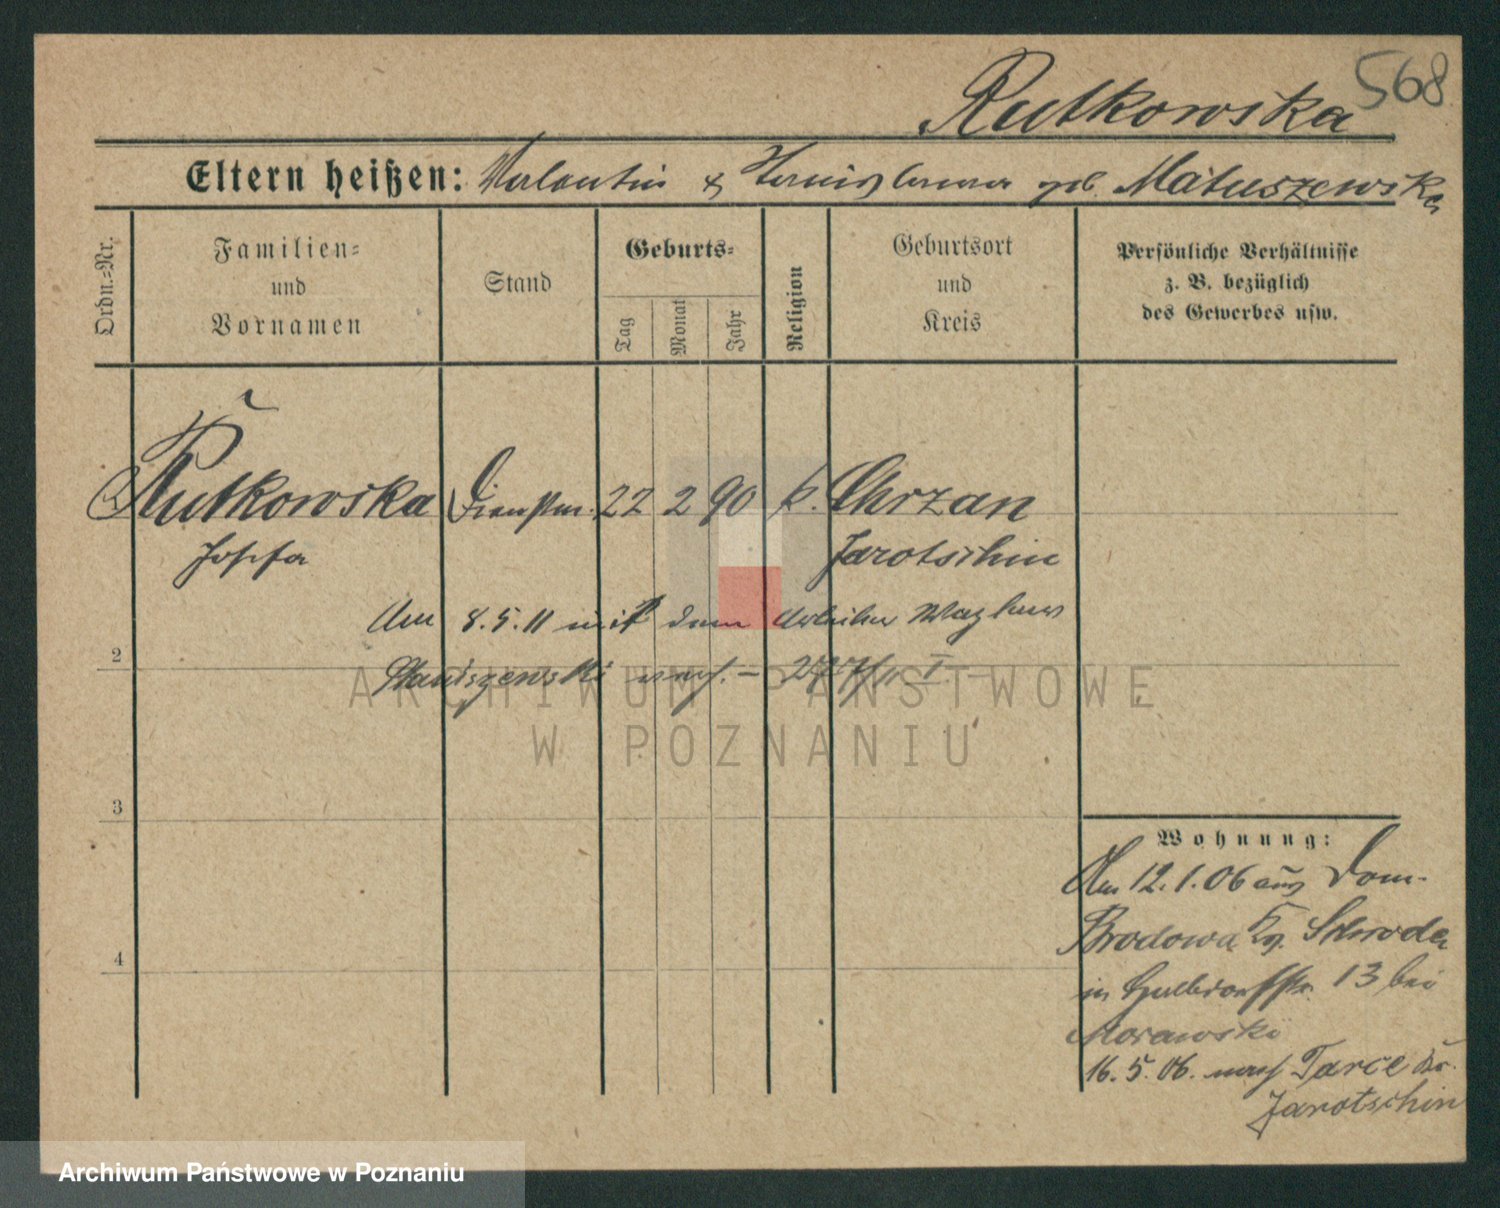 568
Rutkowska
Eltern heißen: Valentin & Stanislawa geb. Matuszewska
Ordn.=Nr.
Familien=
und
Vornamen
Stand
Geburts=
Tag
Monat
Jahr
Religion
Geburtsort
und
Kreis
Persönliche Verhältnisse
z. B. bezüglich
des Gewerbes usw.
Rutkowska Dienstm. 22 2 90 k. Chrzan
Josefa Jarotschin
Am 8.5.11 mit dem Arbeiter
2
Staniszewski verh. – 277/11 I. –
3
4
Wohnung:
Am 12.1.06 aus Dom.
Brodowo Kr. Schroda
in 13 bei
Morawski
16.5.06. nach Tarce Kr.
Jarotschin
ARCHIWUM PAŃSTWOWE
W POZNANIU
Archiwum Państwowe w Poznaniu